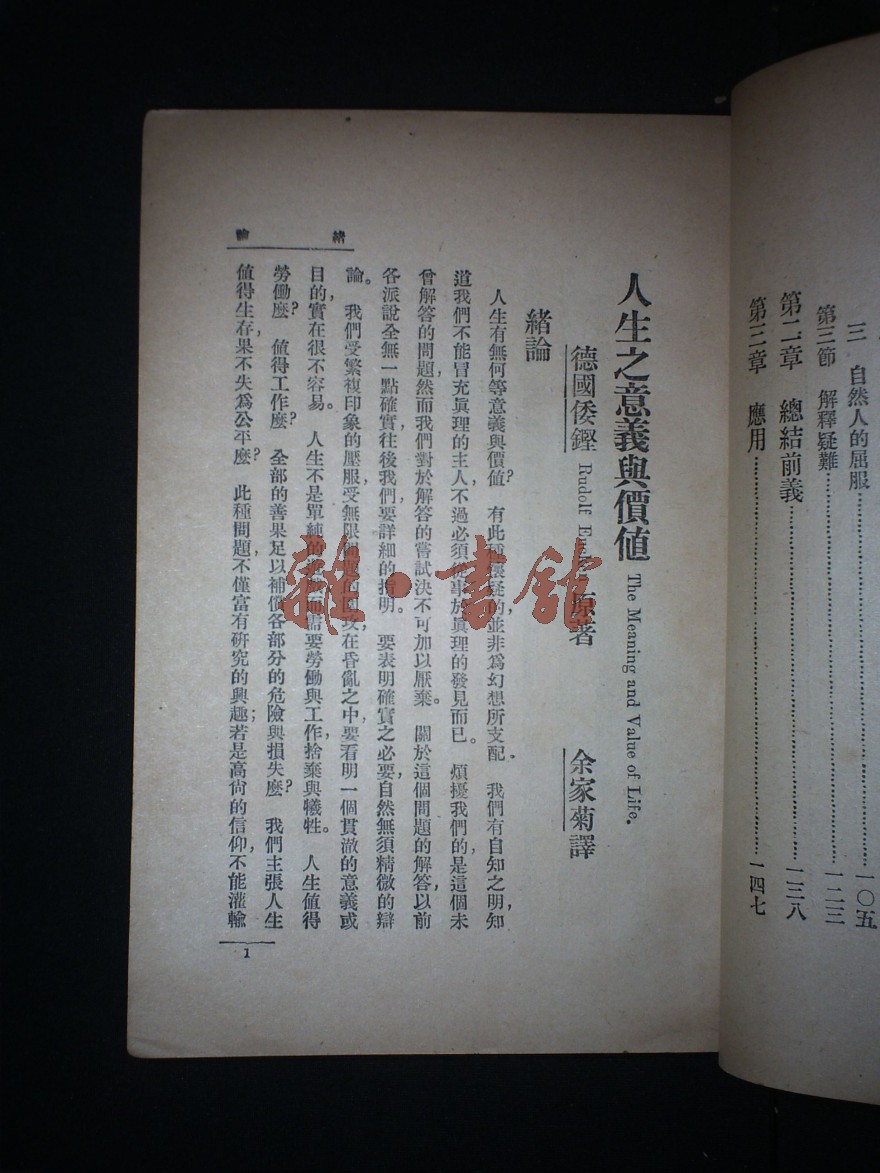 三　自然人的屈服……一〇五
第三節　解釋疑難……一二三
第二章　總結前義……一三八
第三章　應用……一四七
人生之意義與價値 The Meaning and Value of Life.
德國倭鏗 Rudolf 原著　余家菊譯
緒論
人生有無何等意義與價値?有此種懷疑的,並非爲幻想所支配.我們有自知之明,知
道我們不能冒充眞理的主人,不過必須從事於眞理的發見而已。煩擾我們的,是這個未
曾解答的問題,然而我們對於解答的嘗試決不可加以厭棄。關於這個問題的解答,以前
各派說全無一點確實,往後我們要詳細的指明。要表明確實之必要,自然無須精微的辯
論。我們受繁複印象的壓服,受無限的圍攻,在昏亂之中,要看明一個貫澈的意義或
目的,實在很不容易。人生不是單純的遊戲而需要勞働與工作,捨棄與犧牲。人生値得
勞働麼?値得工作麼?全部的善果足以補償各部分的危險與損失麼?我們主張人生
値得生存,果不失爲公平麼?此種問題,不僅富有硏究的興趣;若是高尙的信仰,不能灌輸
緒論
1
雜·書館